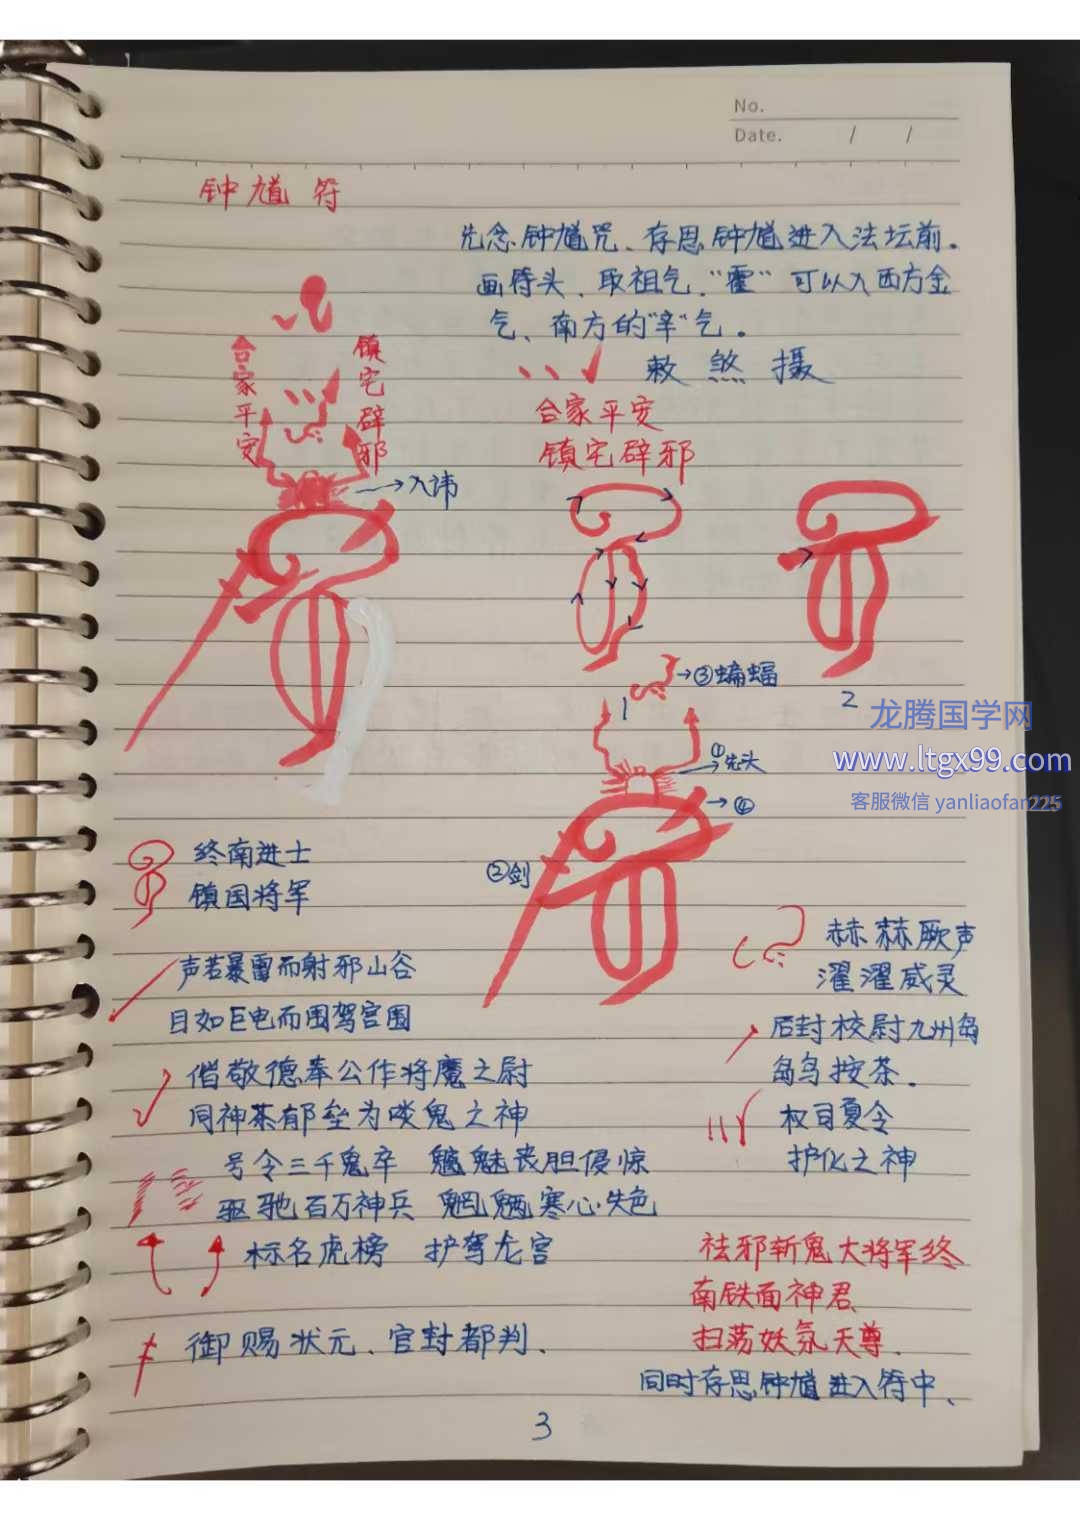 No.
Date. / /
钟馗符
先念钟馗咒、存思钟馗进入法坛前。
画符头、取祖气、"霍"可以入西方金
气、南方的"辛"气。
敕 煞 摄
合家平安
镇宅辟邪
合家平安
镇宅辟邪
→入讳
1
2
→③蝙蝠
①先头
→④
②剑
龙腾国学网
www.ltgx99.com
客服微信 yanliaofan225
终南进士
镇国将军
声若暴雷而射邪山谷
目如巨电而围驾宫围
偕敬德奉公作将魔之尉
同神荼郁垒为啖鬼之神
号令三千鬼卒 魑魅丧胆侵惊
驱驰百万神兵 魍魉寒心失色
标名虎榜 护驾龙宫
御赐状元、官封都判、
赫赫厥声
濯濯威灵
后封校尉九州岛
岛鸟按茶.
权司夏令
护化之神
祛邪斩鬼大将军终
南铁面神君
扫荡妖氛天尊.
同时存思钟馗进入符中、
3